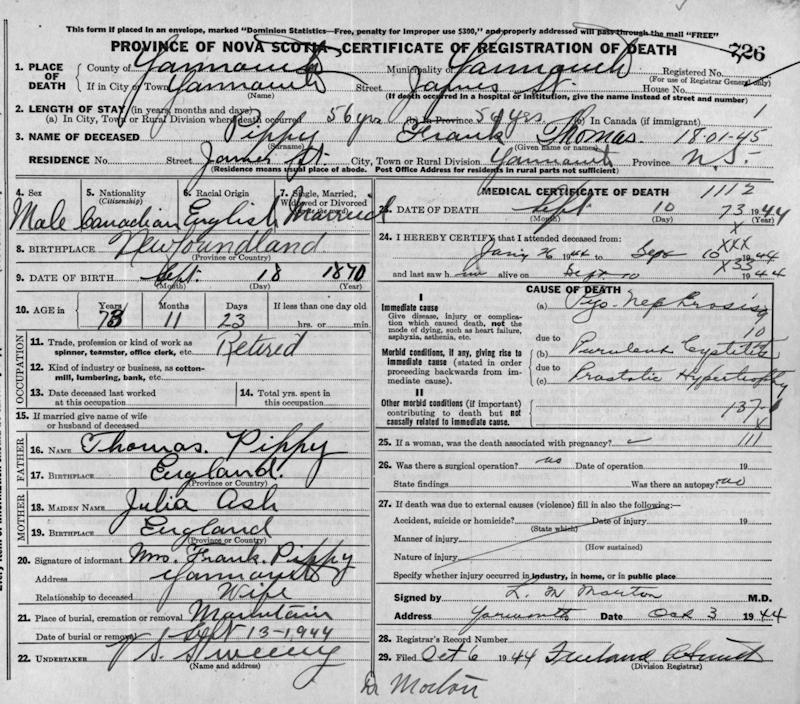 This form if placed in an envelope, marked "Dominion Statistics—Free, penalty for improper use $300," and properly addressed will pass through the mail "FREE"
PROVINCE OF NOVA SCOTIA, CERTIFICATE OF REGISTRATION OF DEATH
726
1. PLACE OF DEATH County of Yarmouth Municipality of Yarmouth Registered No.
(For use of Registrar General only)
If in City or Town Yarmouth Street James St. House No.
(Name) (If death occurred in a hospital or institution, give the name instead of street and number)
2. LENGTH OF STAY (in years months and days)
(a) In City, Town or Rural Division where death occurred 56 yrs. (b) In Province 54 yrs. (c) In Canada (if immigrant)
3. NAME OF DECEASED Pippy Frank Thomas. 18-01-45
(Surname) (Given name or names)
RESIDENCE No. Street James St. City, Town or Rural Division Yarmouth Province N.S.
(Residence means usual place of abode. Post Office Address for residents in rural parts not sufficient)
4. Sex 5. Nationality (Citizenship) 6. Racial Origin 7. Single, Married, Widowed or Divorced
Male Canadian English Married
8. BIRTHPLACE Newfoundland
(Province or Country)
9. DATE OF BIRTH Sept. 18 1870
(Month) (Day) (Year)
10. AGE in Years Months Days If less than one day old
73 11 23 hrs. or min.
OCCUPATION
11. Trade, profession or kind of work as spinner, teamster, office clerk, etc. Retired
12. Kind of industry or business, as cotton-mill, lumbering, bank, etc.
13. Date deceased last worked at this occupation
14. Total yrs. spent in this occupation
15. If married give name of wife or husband of deceased
FATHER
16. NAME Thomas. Pippy
17. BIRTHPLACE England.
(Province or Country)
MOTHER
18. MAIDEN NAME Julia Ash
19. BIRTHPLACE England
(Province or Country)
20. Signature of informant Mrs. Frank. Pippy
Address Yarmouth
Relationship to deceased Wife
21. Place of burial, cremation or removal Mountain
Date of burial or removal Sept 13-1944
22. UNDERTAKER V S. Sweeny
(Name and address)
MEDICAL CERTIFICATE OF DEATH 1112
23. DATE OF DEATH Sept 10 1944
(Month) (Day) (Year)
73
X
24. I HEREBY CERTIFY that I attended deceased from:
XXX
26 1944 to Sept 10 1944
X33
and last saw him alive on Sept 10 1944
CAUSE OF DEATH
I
Immediate cause
Give disease, injury or complication which caused death, not the mode of dying, such as heart failure, asphyxia, asthenia, etc.
(a) Pyo-Nephrosis
10
due to
Morbid conditions, if any, giving rise to immediate cause (stated in order proceeding backwards from immediate cause).
(b) Purulent Cystitis
due to
(c) Prostatic Hypertrophy
II
Other morbid conditions (if important) contributing to death but not causally related to immediate cause.
137-
X
25. If a woman, was the death associated with pregnancy?
111
26. Was there a surgical operation? no Date of operation 19
State findings Was there an autopsy? no
27. If death was due to external causes (violence) fill in also the following:—
Accident, suicide or homicide? Date of injury 19
(State which)
Manner of injury
(How sustained)
Nature of injury
Specify whether injury occurred in industry, in home, or in public place
Signed by L. M Morton M.D.
Address Yarmouth Date Oct 3 1944
28. Registrar's Record Number
29. Filed Oct 6 1944
(Division Registrar)
Dr Morton